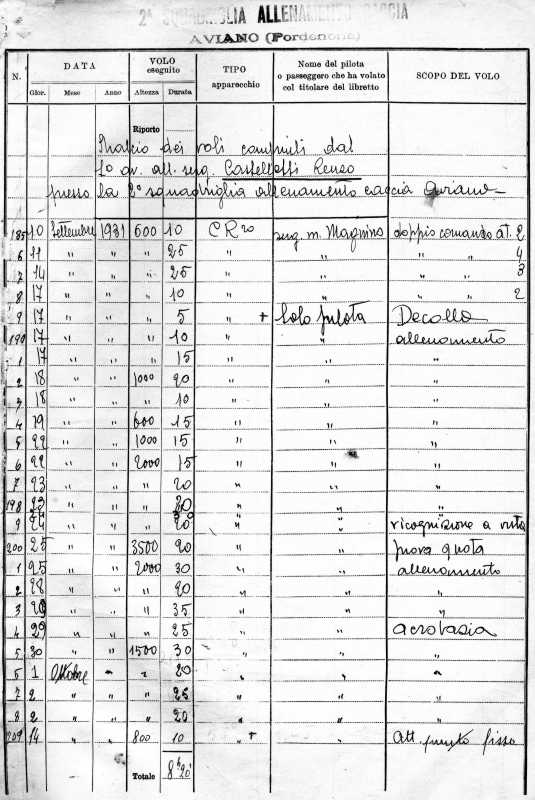 2ª SQUADRIGLIA ALLENAMENTO CACCIA
AVIANO (Pordenone)
N. DATA VOLO eseguito TIPO apparecchio Nome del pilota o passeggero che ha volato col titolare del libretto SCOPO DEL VOLO
Gior. Mese Anno Altezza Durata
Riporto
Stralcio dei voli compiuti dal
1° av. all. serg. Castelletti Renzo
presso la 2ª squadriglia allenamento caccia Aviano
185 10 Settembre 1931 600 10 CR20 serg. m. Magnino doppio comando at. 2
6 11 " " " 25 " " " " 4
7 14 " " " 25 " " " " 3
8 17 " " " 10 " " " " 2
9 17 " " " 5 " + Solo pilota Decollo
190 17 " " " 10 " " allenamento
1 17 " " " 15 " " "
2 18 " " 1000 20 " " "
3 18 " " " 10 " " "
4 19 " " 600 15 " " "
5 22 " " 1000 15 " " "
6 22 " " 2000 15 " " "
7 23 " " " 20 " " "
198 23 " " " 20 " " "
9 24 " " " 20 " " ricognizione a vista
200 25 " " 3500 20 " " prova quota
1 25 " " 2000 30 " " allenamento
2 28 " " " 20 " " "
3 " " " 35 " " "
4 29 " " " 25 " " acrobazia
5 30 " " 1500 30 " " "
6 1 Ottobre " " 20 " " "
7 2 " " " 25 " " "
8 2 " " " 20 " " "
209 14 " " 800 10 " + " Att. punto fisso
Totale 8h 20'